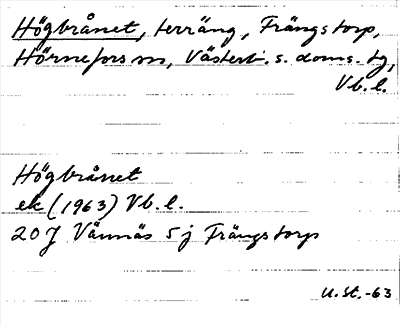 Högbrånet, terräng, Frängstorp,
Hörnefors sn, Västerb. s. doms. tg,
Vb. l.
Högbrånet
ek (1963) Vb. l.
20J Vännäs 5 j Frängstorp
U.St.-63